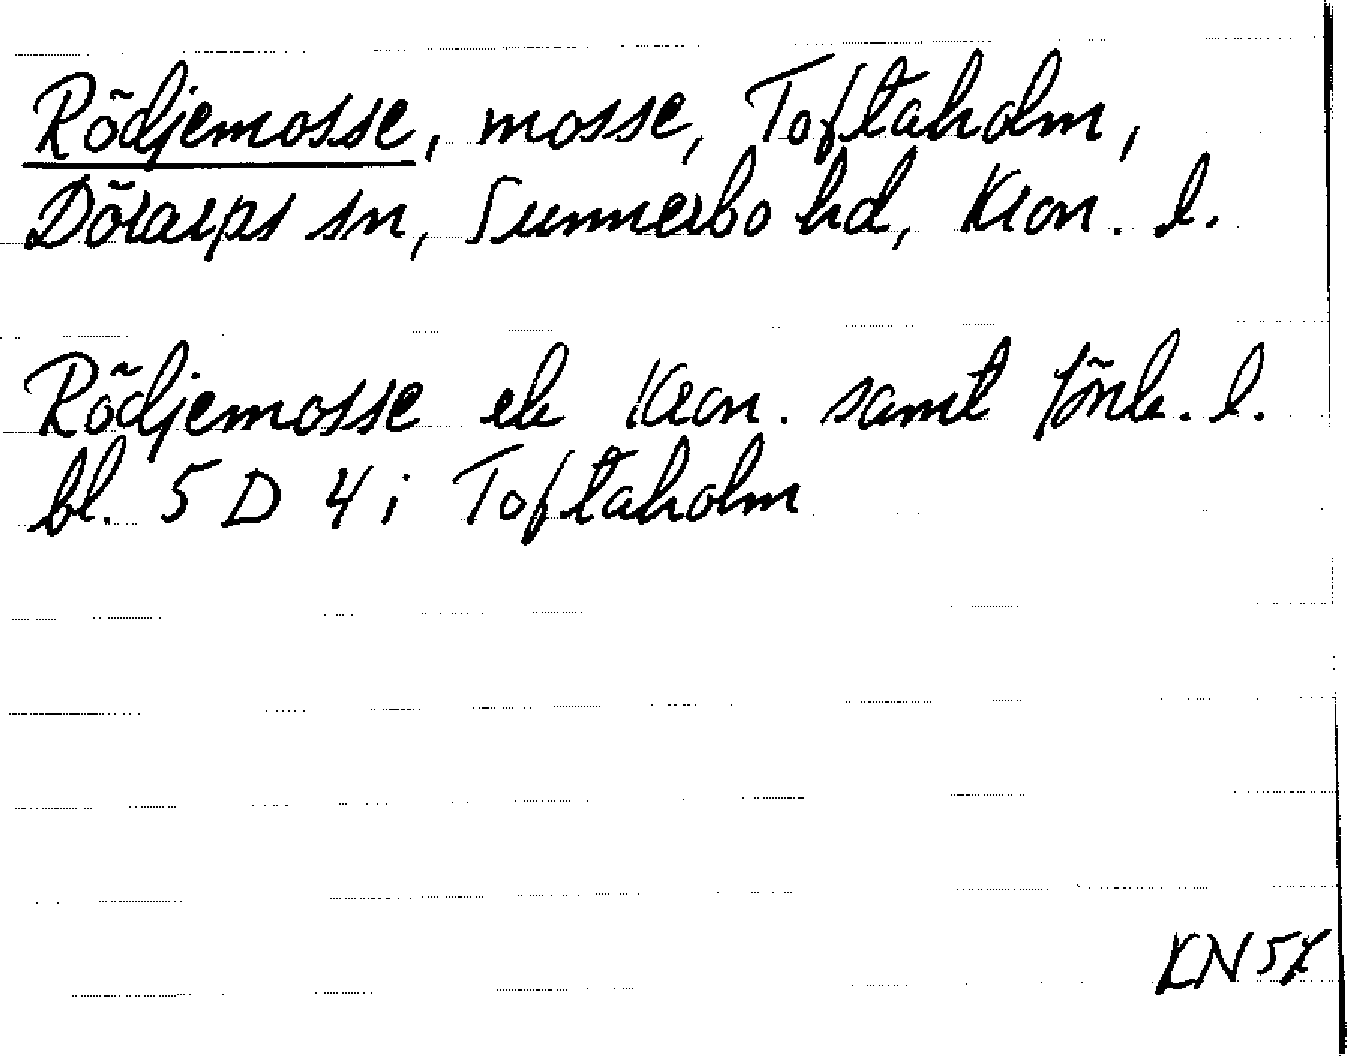 Rödjemosse, mosse, Toftaholm,
Dörarps sn, Sunnerbo hd, Kron. l.
Rödjemosse ek Kron. samt Jönk. l.
bl. 5 D 4 i Toftaholm
KN 57